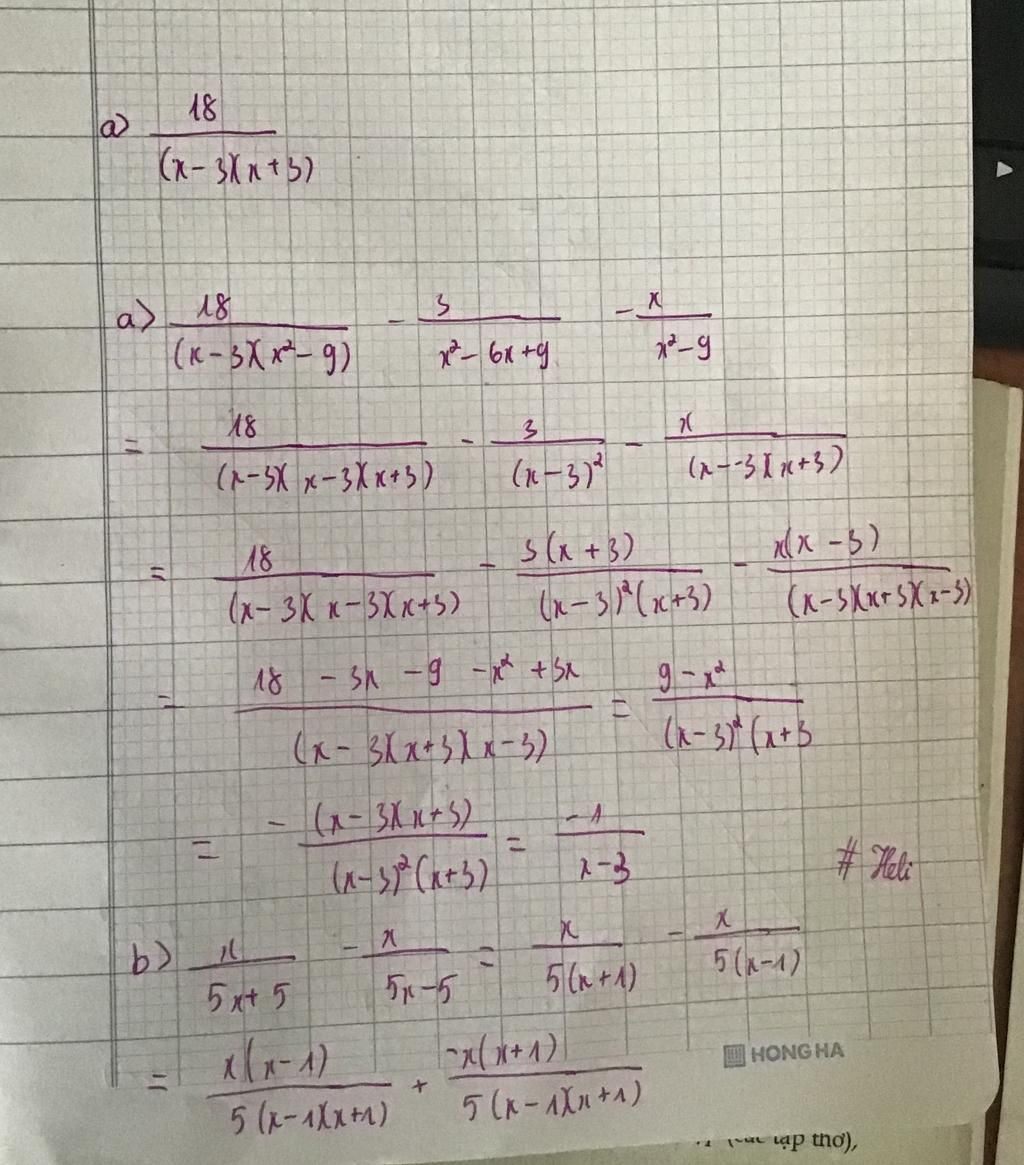 a) 18 / (x-3)(x+3)
a) 18 / (x-3)(x²-9) - 3 / x²-6x+9 - x / x²-9
= 18 / (x-3)(x-3)(x+3) - 3 / (x-3)² - x / (x--3)(x+3)
= 18 / (x-3)(x-3)(x+3) - 3(x+3) / (x-3)²(x+3) - x(x-3) / (x-3)(x+3)(x-3)
= 18 -3x -9 -x² +3x / (x-3)(x+3)(x-3) = 9-x² / (x-3)²(x+3
= - (x-3)(x+3) / (x-3)²(x+3) = -1 / x-3
# Heli
b) x / 5x+5 - x / 5x-5 = x / 5(x+1) - x / 5(x-1)
= x(x-1) / 5(x-1)(x+1) + -x(x+1) / 5(x-1)(x+1)
HONG HA
tập thơ),